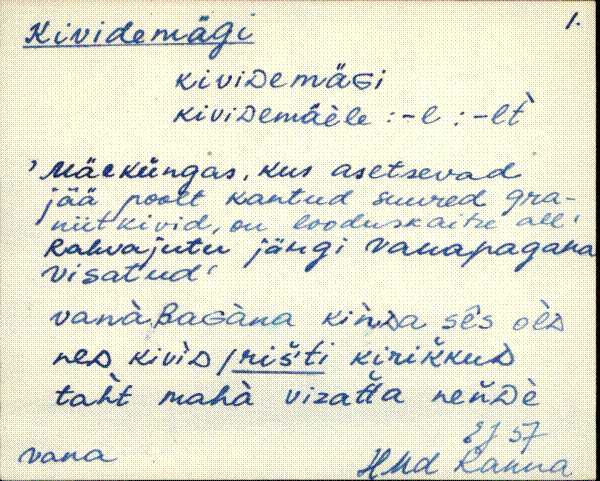 1.
Kividemägi
kiviDemäGi
kiviDemäèle : -l : -lt̀
'Mäeküngas, kus asetsevad
jää poolt kantud suured gra-
niitkivid, on looduskaitse all'
Rahvajutu järgi Vanapagana
visatud'
vanàBaGàna kìnDa sês òlD
neD kivìD / rišti kirikkuD
taht̀ mahà vizatta nenDè
EJ 57
vana
HMd Kanna